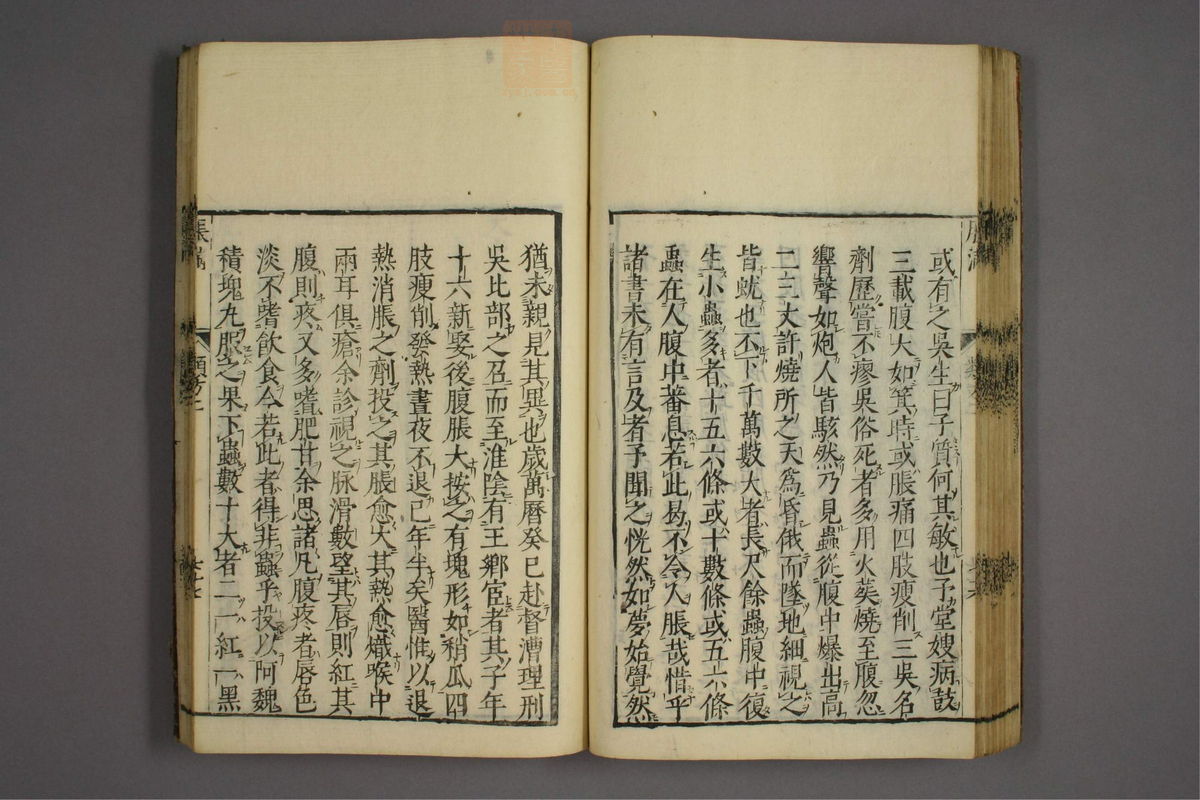 或有之吳生曰子質何其敏也子堂嫂病鼓
三載腹大如箕時或脹痛四肢瘦削三吳名
劑歷嘗不瘳吳俗死者多用火葬燒至腹忽
響聲如炮人皆駭然乃見蟲從腹中爆出高
二三丈許燒所之天為昏俄而墜地細視之
皆蚘也不下千萬數大者長尺餘蟲腹中復
生小蟲多者十五六條或十數條或五六條
蟲在人腹中蕃息若此曷不令人脹哉惜乎
諸書未有言及者予聞之恍然如夢始覺然
猶未親見其異也歲萬曆癸巳赴督漕理刑
吳比部之召而至淮陰有王鄉宦者其子年
十六新娶後腹脹大按之有塊形如稍瓜四
肢瘦削發熱晝夜不退已年半矣醫惟以退
熱消脹之劑投之其脹愈大其熱愈熾喉中
兩耳俱瘡余診視之脉滑數望其唇則紅其
腹則疼又多嗜肥甘余思諸凡腹疼者唇色
淡不嗜飲食今若此者得非蟲乎投以阿魏
積塊丸服之果下蟲數十大者二一紅一黑
脹滿